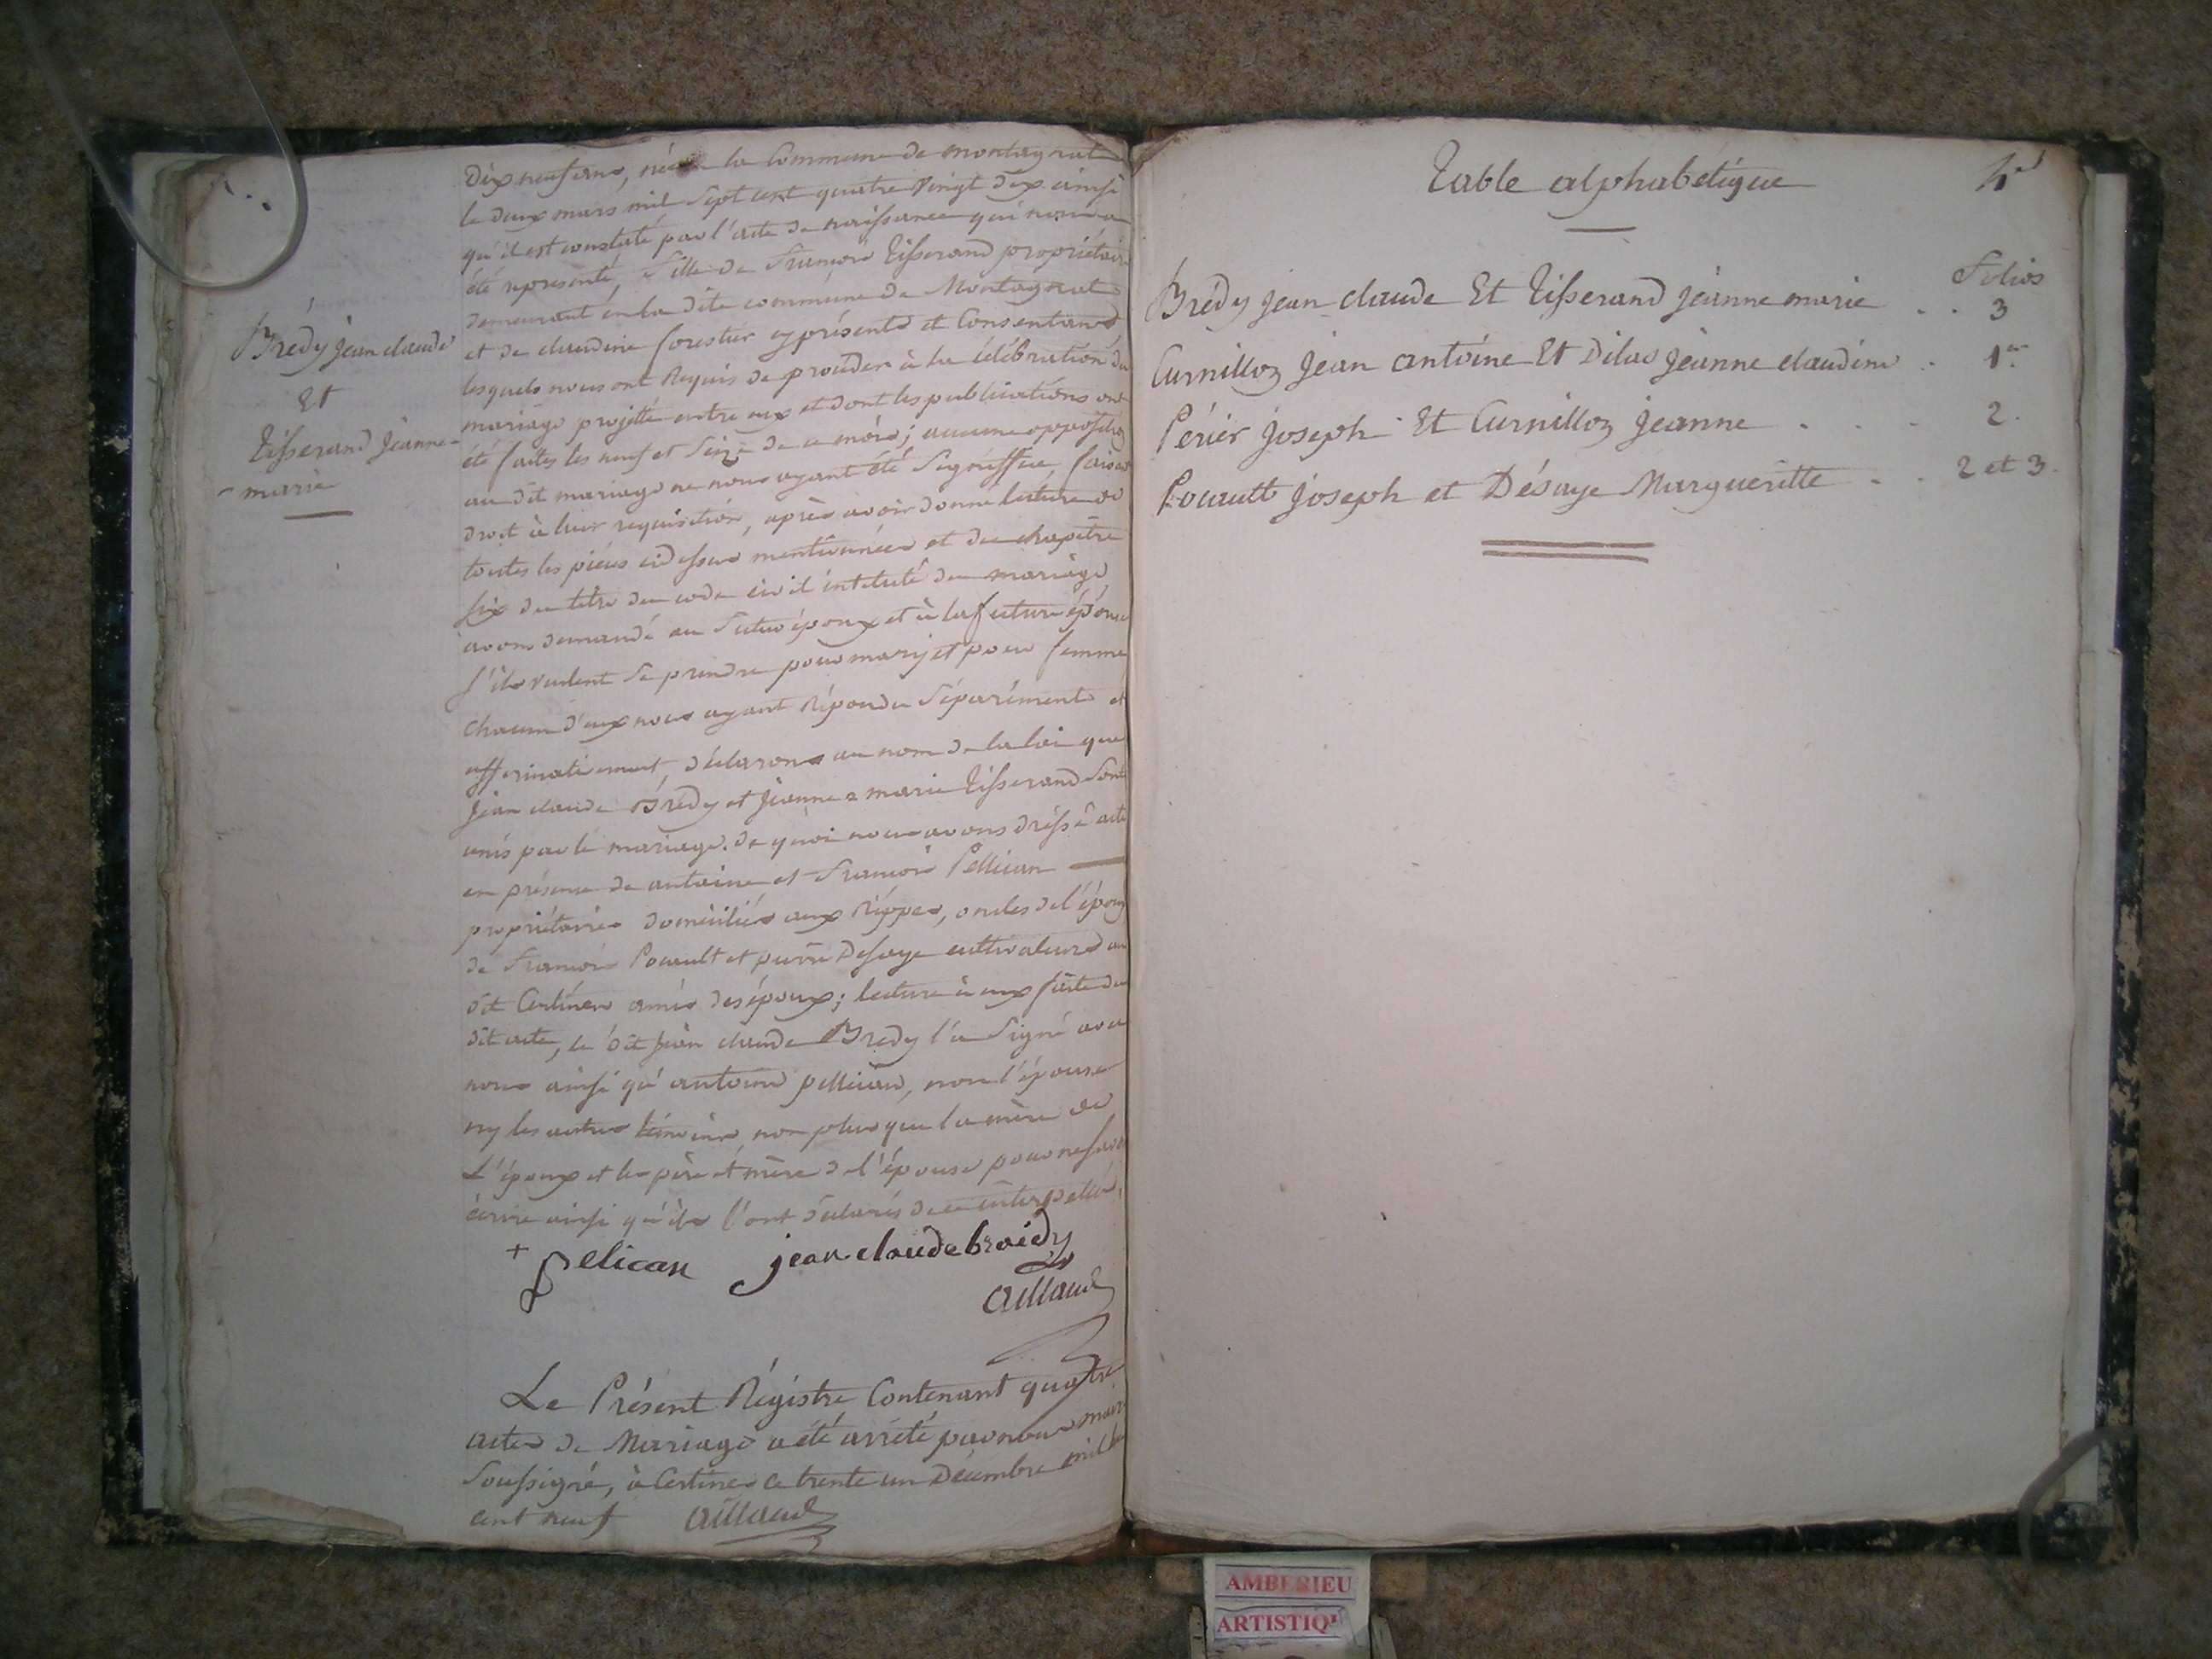 Brédy jean claude
Et
Tisserand Jeanne-
-marie
Dix neuf ans, née la Commune de montagnat
le deux mars mil Sept cent quatre vingt dix ainsi
qu'il est constaté par l'acte de naissance qui nous a
été représenté, fille de François Tisserand propriétaire
demeurant en la dite commune de Montagnat
et de claudine forestier cy présents et Consentants
lesquels nous ont Requis de procéder à la célébration du
mariage projetté entre eux et dont les publications ont
été faites les neuf et Seize de ce mois; aucune opposition
au dit mariage ne nous ayant été Signiffiée, faisant
droit à leur requisition, après avoir donné lecture de
toutes les pièces cidessus mentionnées et du chapitre
six du titre du code civil intitulé du mariage,
avons demandé au futur époux et à la future épouse
s'ils veulent Se prendre pour mary et pour femme
chacun d'eux nous ayant Répondu Séparément et
affirmativement, déclarons au nom de la loi que
Jean claude Brédy et Jeanne marie Tisserand Sont
unis par le mariage. de quoi nous avons dréssé acte
en présence de antoine et François Pellican
propriétaires domiciliés aux Rippes, oncles de l'époux
de François Pouault et pierre Desaye cultivateurs au
dit Certines amis des époux; lecture à eux faite du
dit acte, le dit Jean claude Bredy l'a Signé avec
nous ainsi qu'antoine pellican, non l'épouse
ny les autres témoins non plus que la mère de
L'époux et les père et mère de l'épouse pour ne savoir
écrire ainsi qu'ils l'ont déclarés de ce interpellés.
+ pelican jean claude braidy
aillaud
Le Présent Régistre Contenant quatre
actes de Mariage a été arrêté par nous maire
Soussigné, à Certines ce trente un Décembre mil huit
cent neuf aillaud
Table alphabétique
Folios
Brédy jean claude Et Tisserand jeanne marie . . 3
Curnilloz Jean antoine Et Dilas Jeanne claudine . 1er
Périer Joseph Et Curnilloz Jeanne . . . 2.
Pouault Joseph et Désaye Marguerite . . 2 et 3.
AMBERIEU
ARTISTIQ